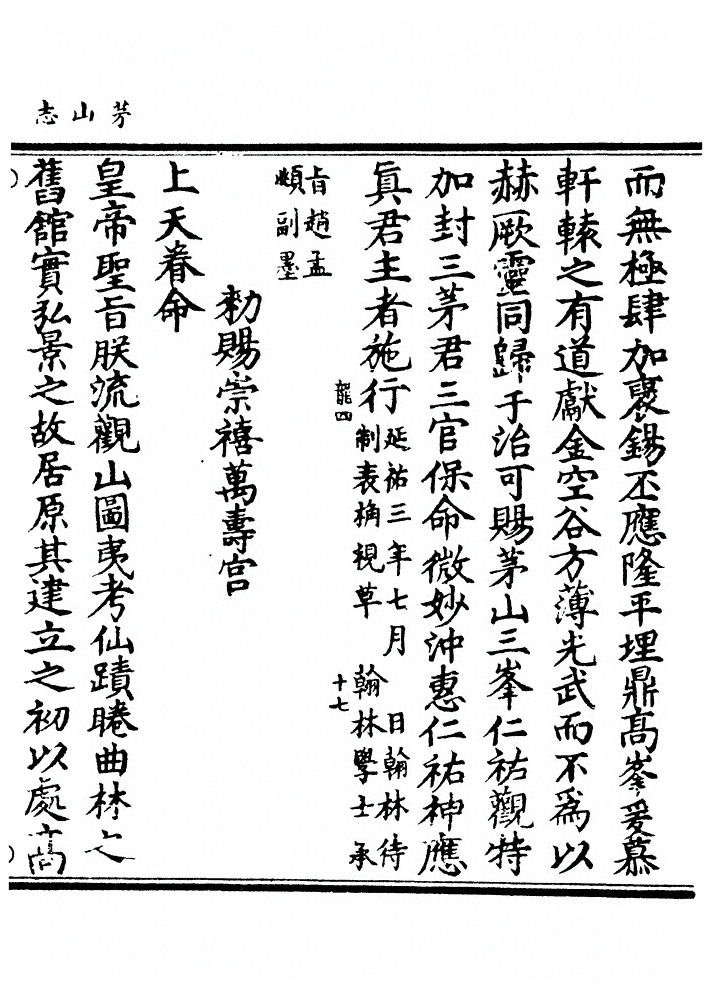 芳山志
而無極肆加褒錫丕應隆平埋鼎髙峯爰慕
軒轅之有道獻金空谷方薄光武而不爲以
赫厥靈同歸于治可賜茅山三峯仁祐觀特
加封三茅君三官保命微妙沖惠仁祐神應
眞君主者施行
延祐三年七月 日翰林待
制表桷視草 翰林學士承
龍四
十七
旨趙孟
頫副墨
勑賜崇禧萬壽宫
上天眷命
皇帝聖旨朕流觀山圖夷考仙蹟睠曲林之
舊館實弘景之故居原其建立之初以處高